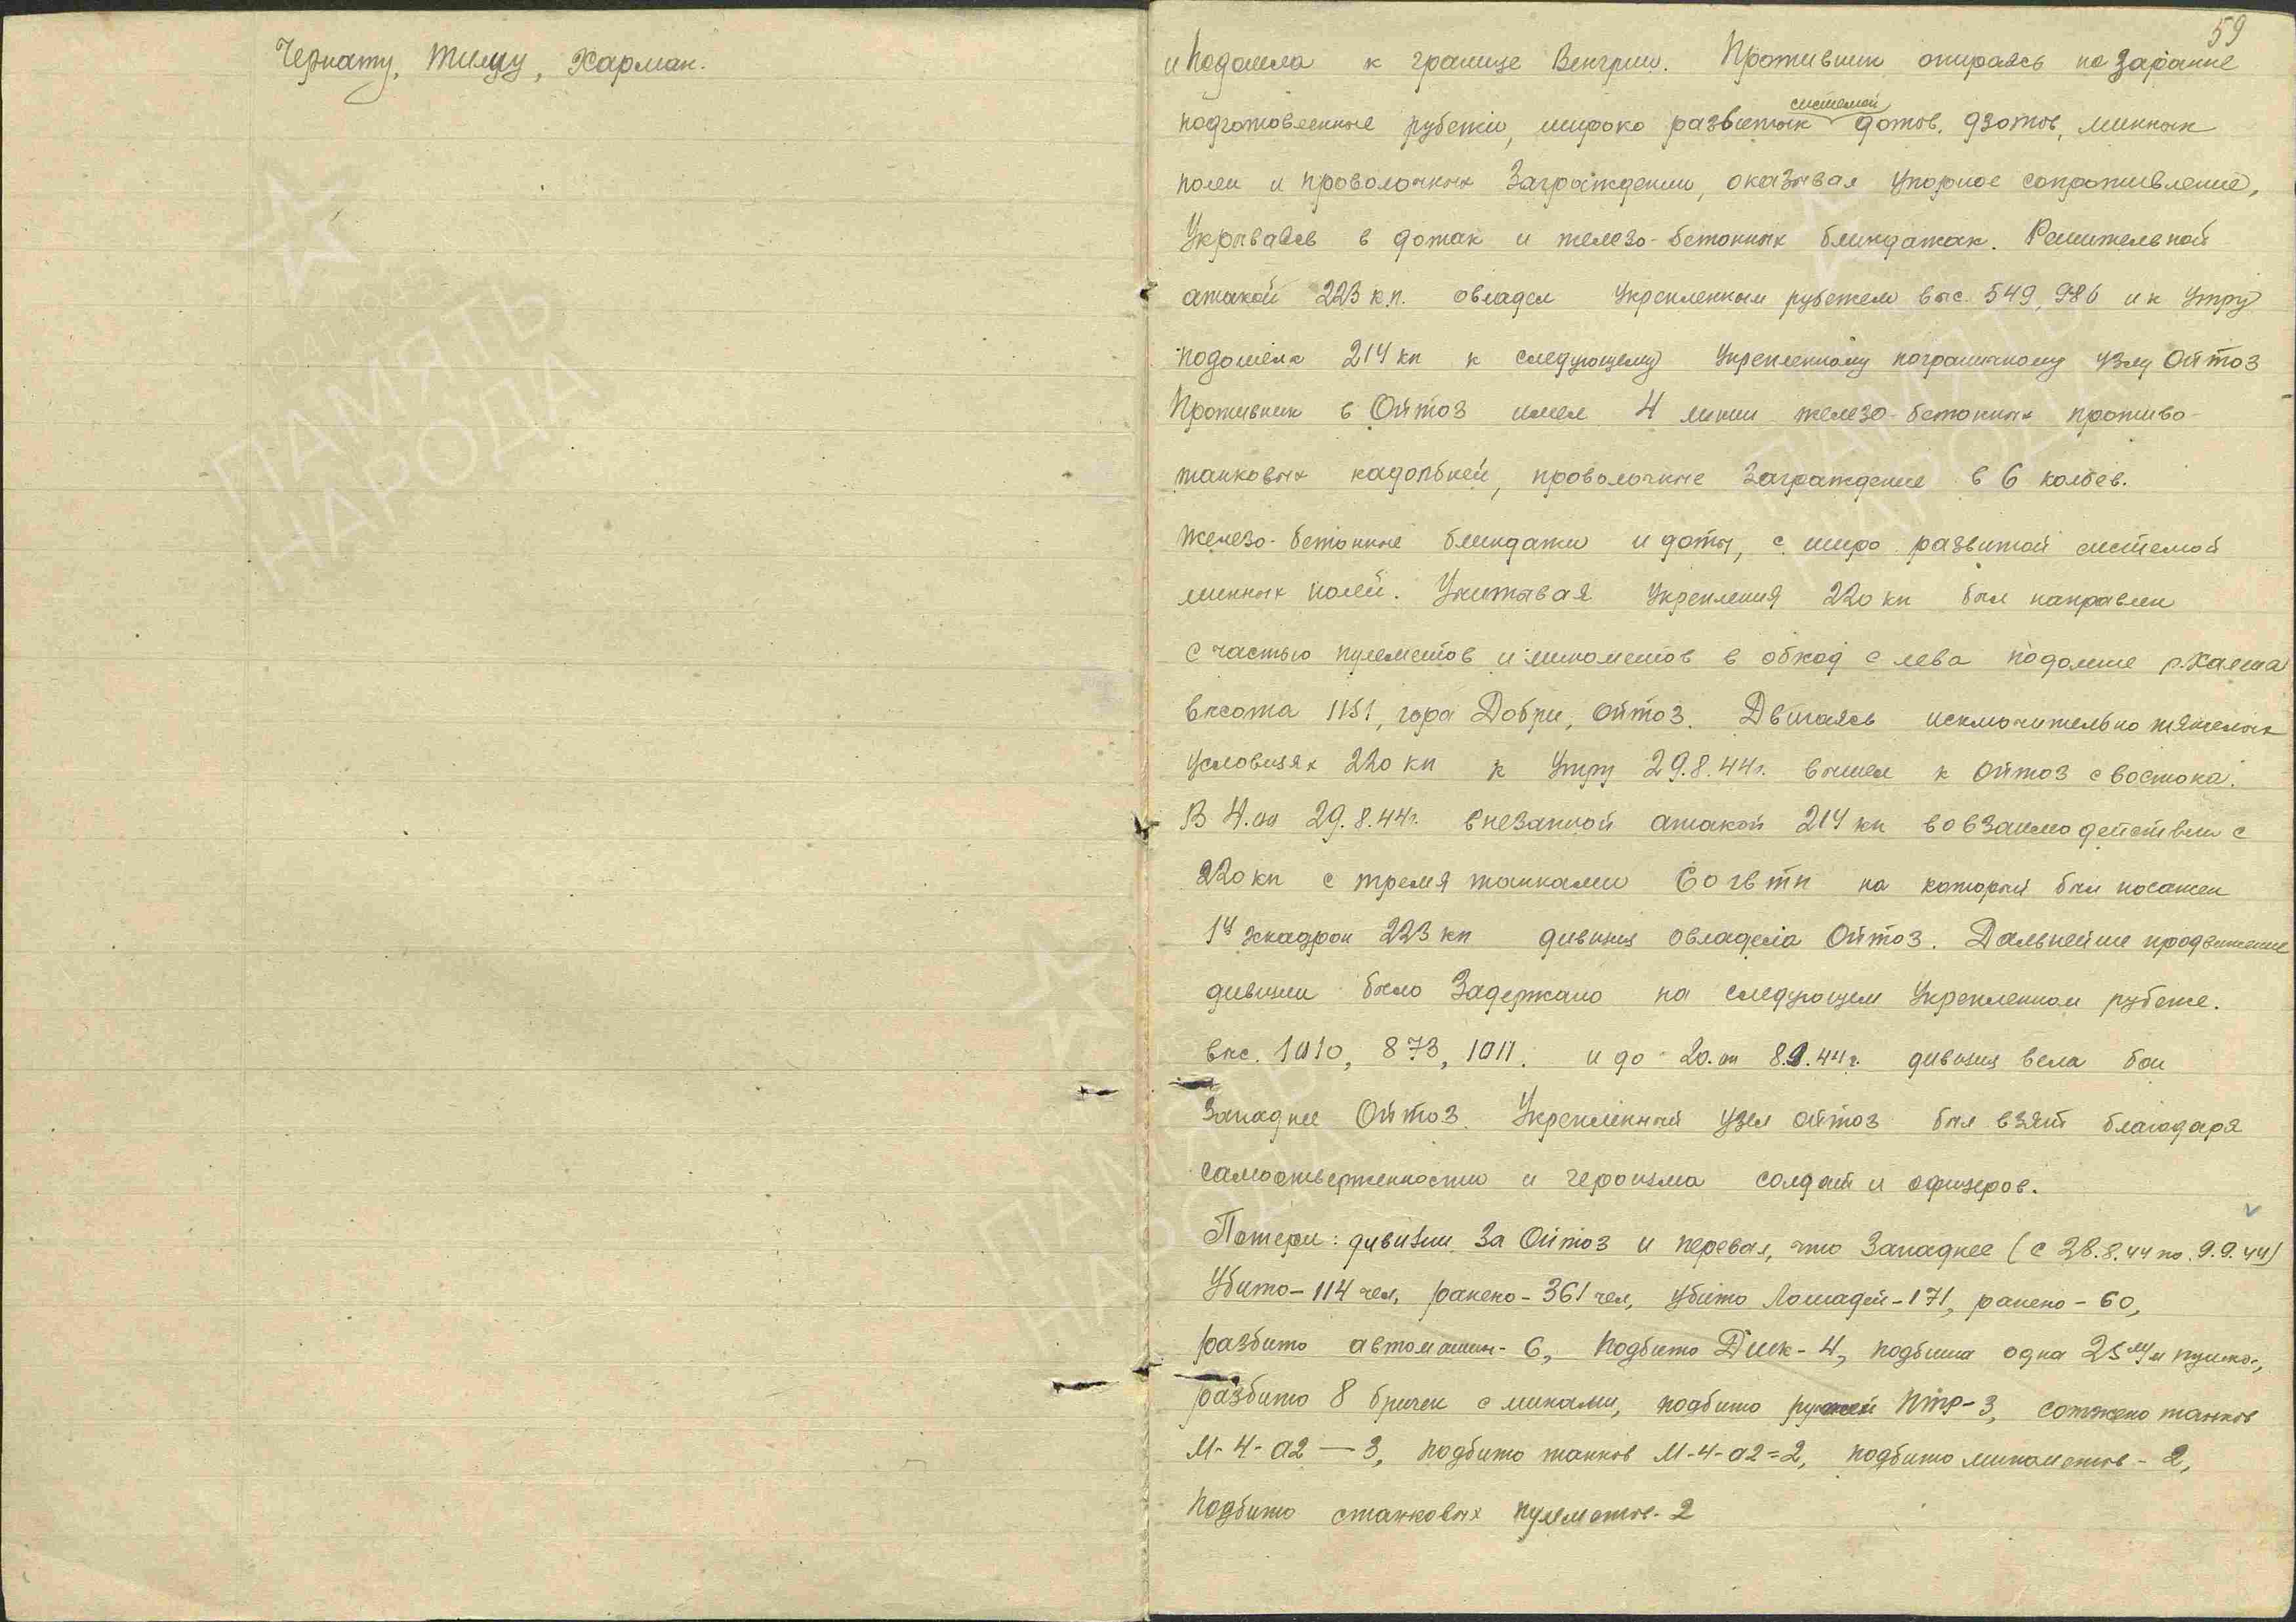 Чернату, Тилцу, Харман.
59
и подошла к границе Венгрии. Противник опираясь на заранне
системой
подготовленные рубежи, широко развитых дотов, дзотов, минных
полей и проволочных заграждении, оказывая упорное сопротивление,
Укрываясь в дотах и железо-бетонных блиндажах. Решительной
атакой 223 кп. овладел укрепленным рубежем выс. 549, 986 и к утру
подошел 214 кп к следующему укрепленному пограничному узлу Ойтоз
Противник в Ойтоз имел 4 линии железо-бетонных противо-
танковых надолбней, проволочные заграждение в 6 кольев.
железо-бетонные блиндажи и доты, с широ развитой системой
минных полей. Учитывая укрепления 220 кп был направлен
с частью пулеметов и минометов в обход с лева по долине р.
высота 1151, гора Добри, Ойтоз. Двигаясь исключительно тяжелых
условиях 220 кп к утру 29.8.44г. вышел к Ойтоз с востока.
В 4.00 29.8.44г. внезапной атакой 214 кп во взаимодействии с
220 кп с тремя танками 60 гв тп на который был посажен
1й эскадрон 223 кп дивизия овладела Ойтоз. Дальнейше продвижение
дивизии было задержано на следующем укрепленном рубеже.
выс. 1010, 873, 1011. и до 20.00 8.9.44г. дивизия вела бои
Западнее Ойтоз. Укрепленный узел Ойтоз был взят благодаря
самоотверженностью и героизма солдат и офицеров.
Потери: дивизии за Ойтоз и перевал, что Западнее (с 28.8.44 по 9.9.44)
Убито-114 чел, ранено-361 чел, убито лошадей-171, ранено-60,
разбито автомашин-6, подбито Дшк-4, подбита одна 25 м/м пушка,
разбито 8 бричек с минами, подбито ружей ПТР-3, сожжено танков
М-4-а2 — 3, подбито танков М-4-а2=2, подбито минометов-2,
подбито станковых пулеметов-2
ПАМЯТЬ
НАРОДА
1941-1945